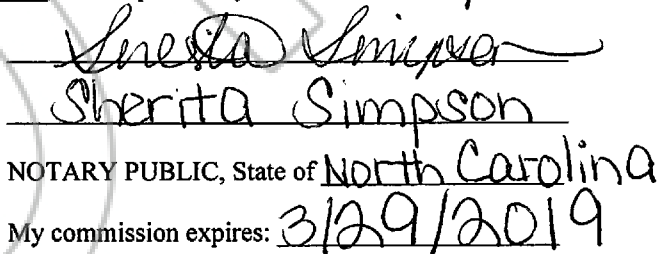 Sherita Simpson
Sherita Simpson
NOTARY PUBLIC, State of North Carolina
My commission expires: 3/29/2019